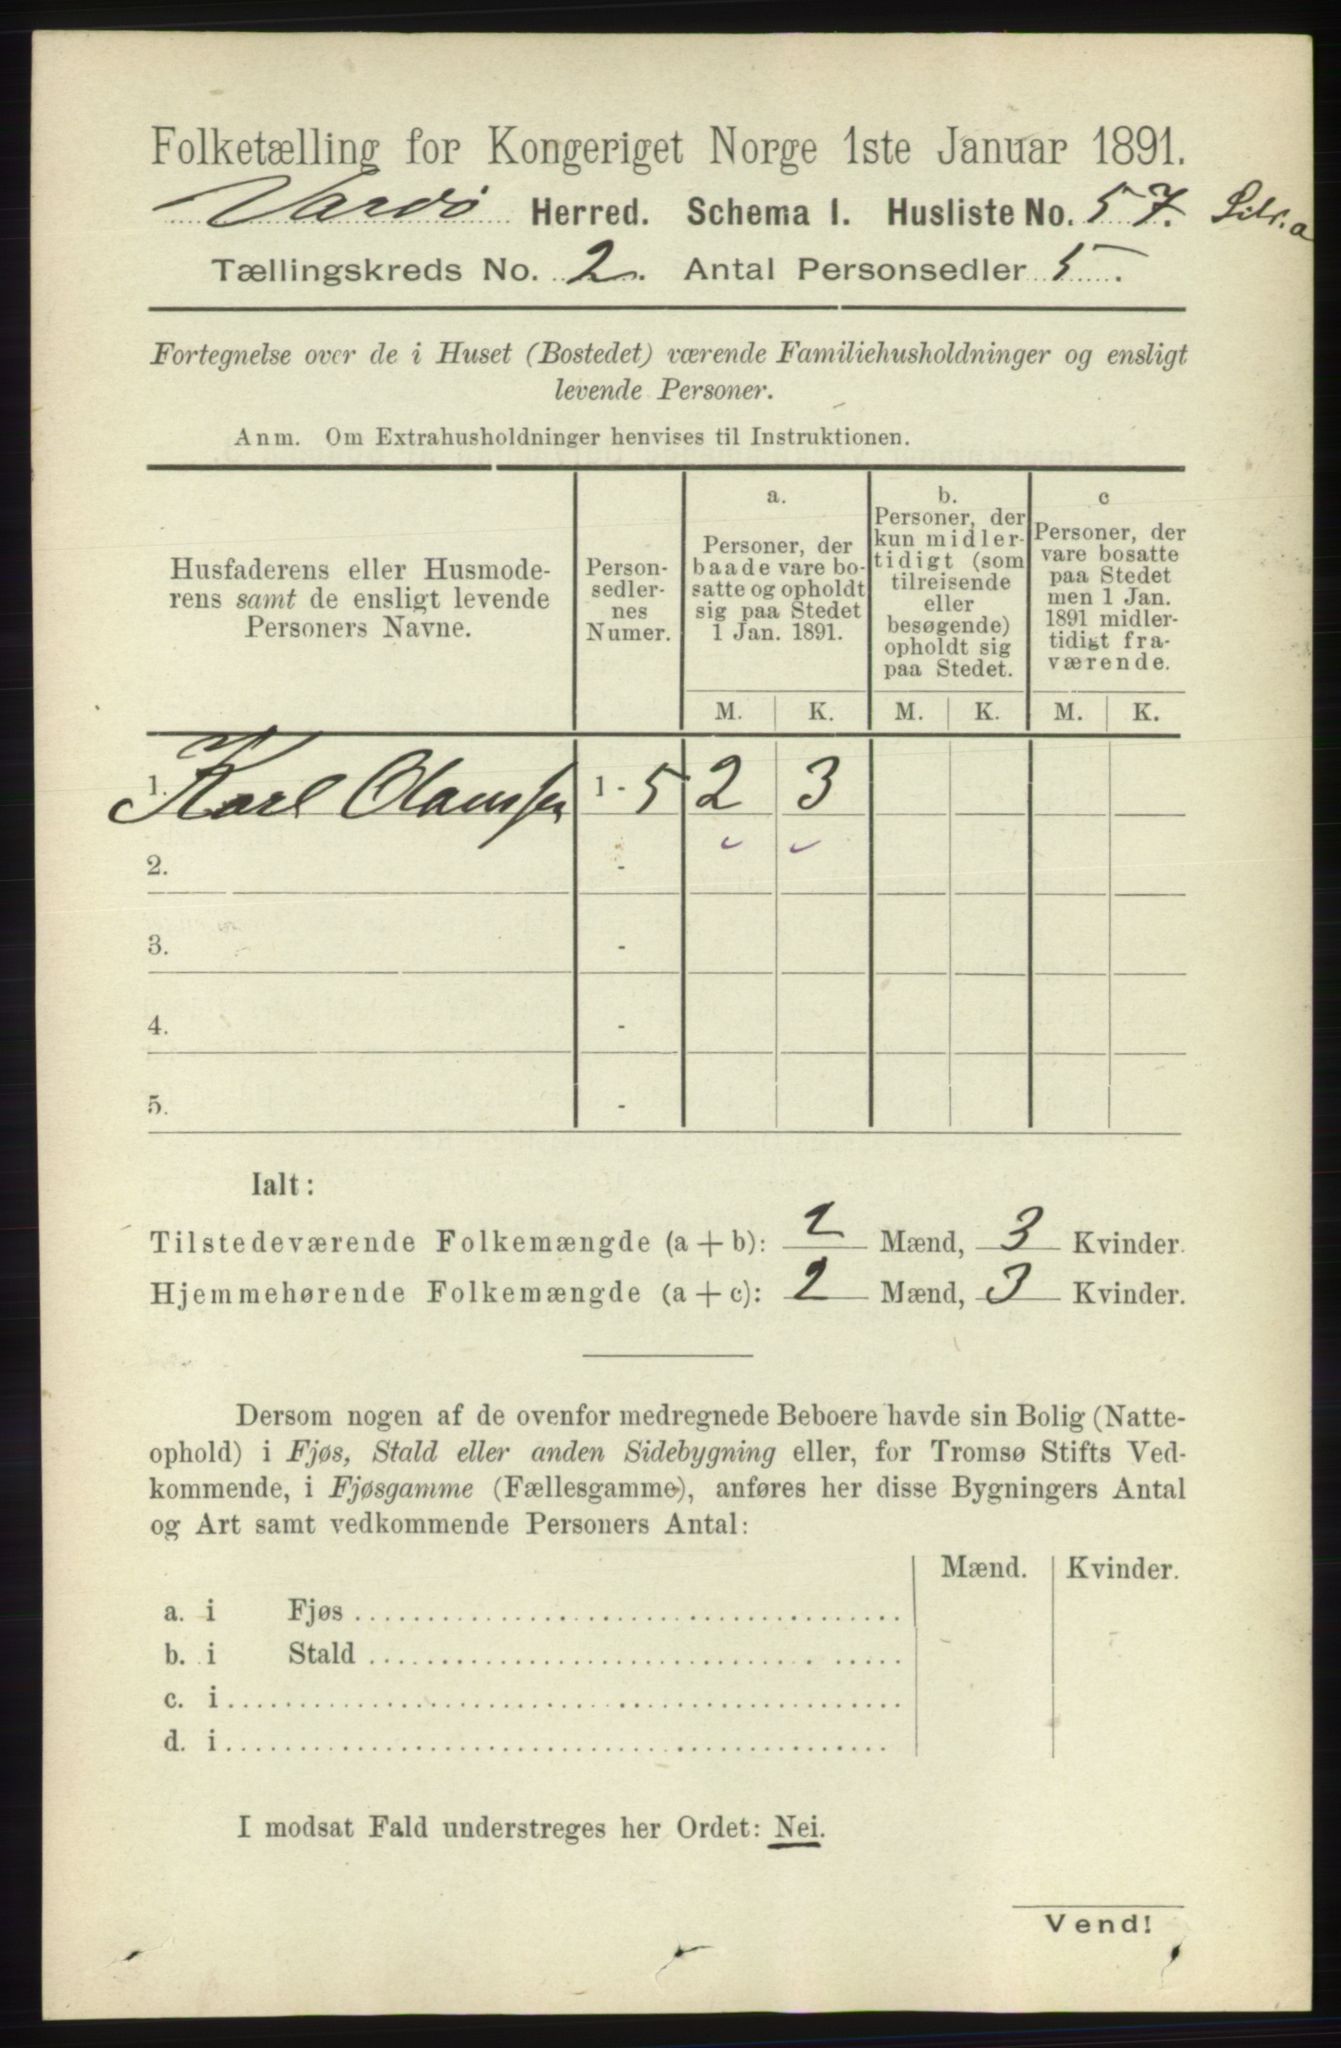 Folketælling for Kongeriget Norge 1ste Januar 1891.
Vardö Herred. Schema I. Husliste No. 57. Litr. a
Tællingskreds No. 2. Antal Personsedler 5.
Fortegnelse over de i Huset (Bostedet) værende Familiehusholdninger og ensligt
levende Personer.
Anm. Om Extrahusholdninger henvises til Instruktionen.
Husfaderens eller Husmode-
rens samt de ensligt levende
Personers Navne.
Person-
sedler-
nes
Numer.
a.
Personer, der
baade vare bo-
satte og opholdt
sig paa Stedet
1 Jan. 1891.
b.
Personer, der
kun midler-
tidigt (som
tilreisende
eller
besøgende)
opholdt sig
paa Stedet.
c
Personer, der
vare bosatte
paa Stedet
men 1 Jan.
1891 midler-
tidigt fra-
værende.
M. K. M. K. M. K.
1. Karl Olaussen 1 - 5 2 3
2. -
3. -
4. -
5. -
Ialt:
Tilstedeværende Folkemængde (a + b): 2 Mænd, 3 Kvinder.
Hjemmehørende Folkemængde (a + c): 2 Mænd, 3 Kvinder.
Dersom nogen af de ovenfor medregnede Beboere havde sin Bolig (Natte-
ophold) i Fjøs, Stald eller anden Sidebygning eller, for Tromsø Stifts Ved-
kommende, i Fjøsgamme (Fællesgamme), anføres her disse Bygningers Antal
og Art samt vedkommende Personers Antal:
Mænd. Kvinder.
a. i Fjøs
b. i Stald
c. i
d. i
I modsat Fald understreges her Ordet: Nei.
Vend!